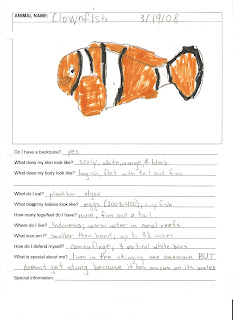 ANIMAL NAME: Clownfish 3/19/08
Do I have a backbone? yes
What does my skin look like? scaly, white, orange, & black
What does my body look like? long, flat with tail and fins
What do I eat? plankton, algae
What do my babies look like? eggs (200-400), tiny fish
How many legs/feet do I have? none, fins and a tail
Where do I live? Indonesia, warm water in coral reefs
What size am I? smaller than hand, up to 3½ inches
How do I defend myself? camouflage, 3 vertical white bars
What is special about me? lives in the stinging sea anemone BUT
doesn't get stung because it has mucus on its scales
Special information: